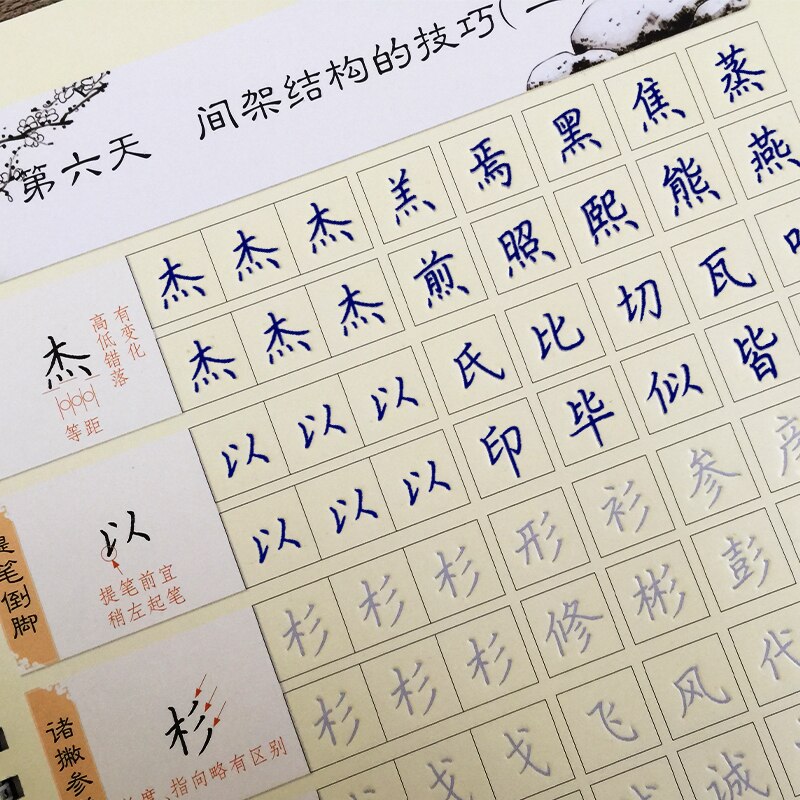 第六天 间架结构的技巧(一
杰 杰 杰 羔 焉 黑 焦 蒸
杰 杰 杰 煎 照 熙 熊 燕
杰
有变化
高低错落
等距
以 以 以 氏 比 切 瓦
以 以 以 印 毕 似 皆
提笔倒脚
以
提笔前宜
稍左起笔
杉 杉 杉 形 衫 参 彦
杉 杉 杉 修 彬 彭
诸撇参
杉
度、指向略有区别
戈 戈 飞 风 代
诚